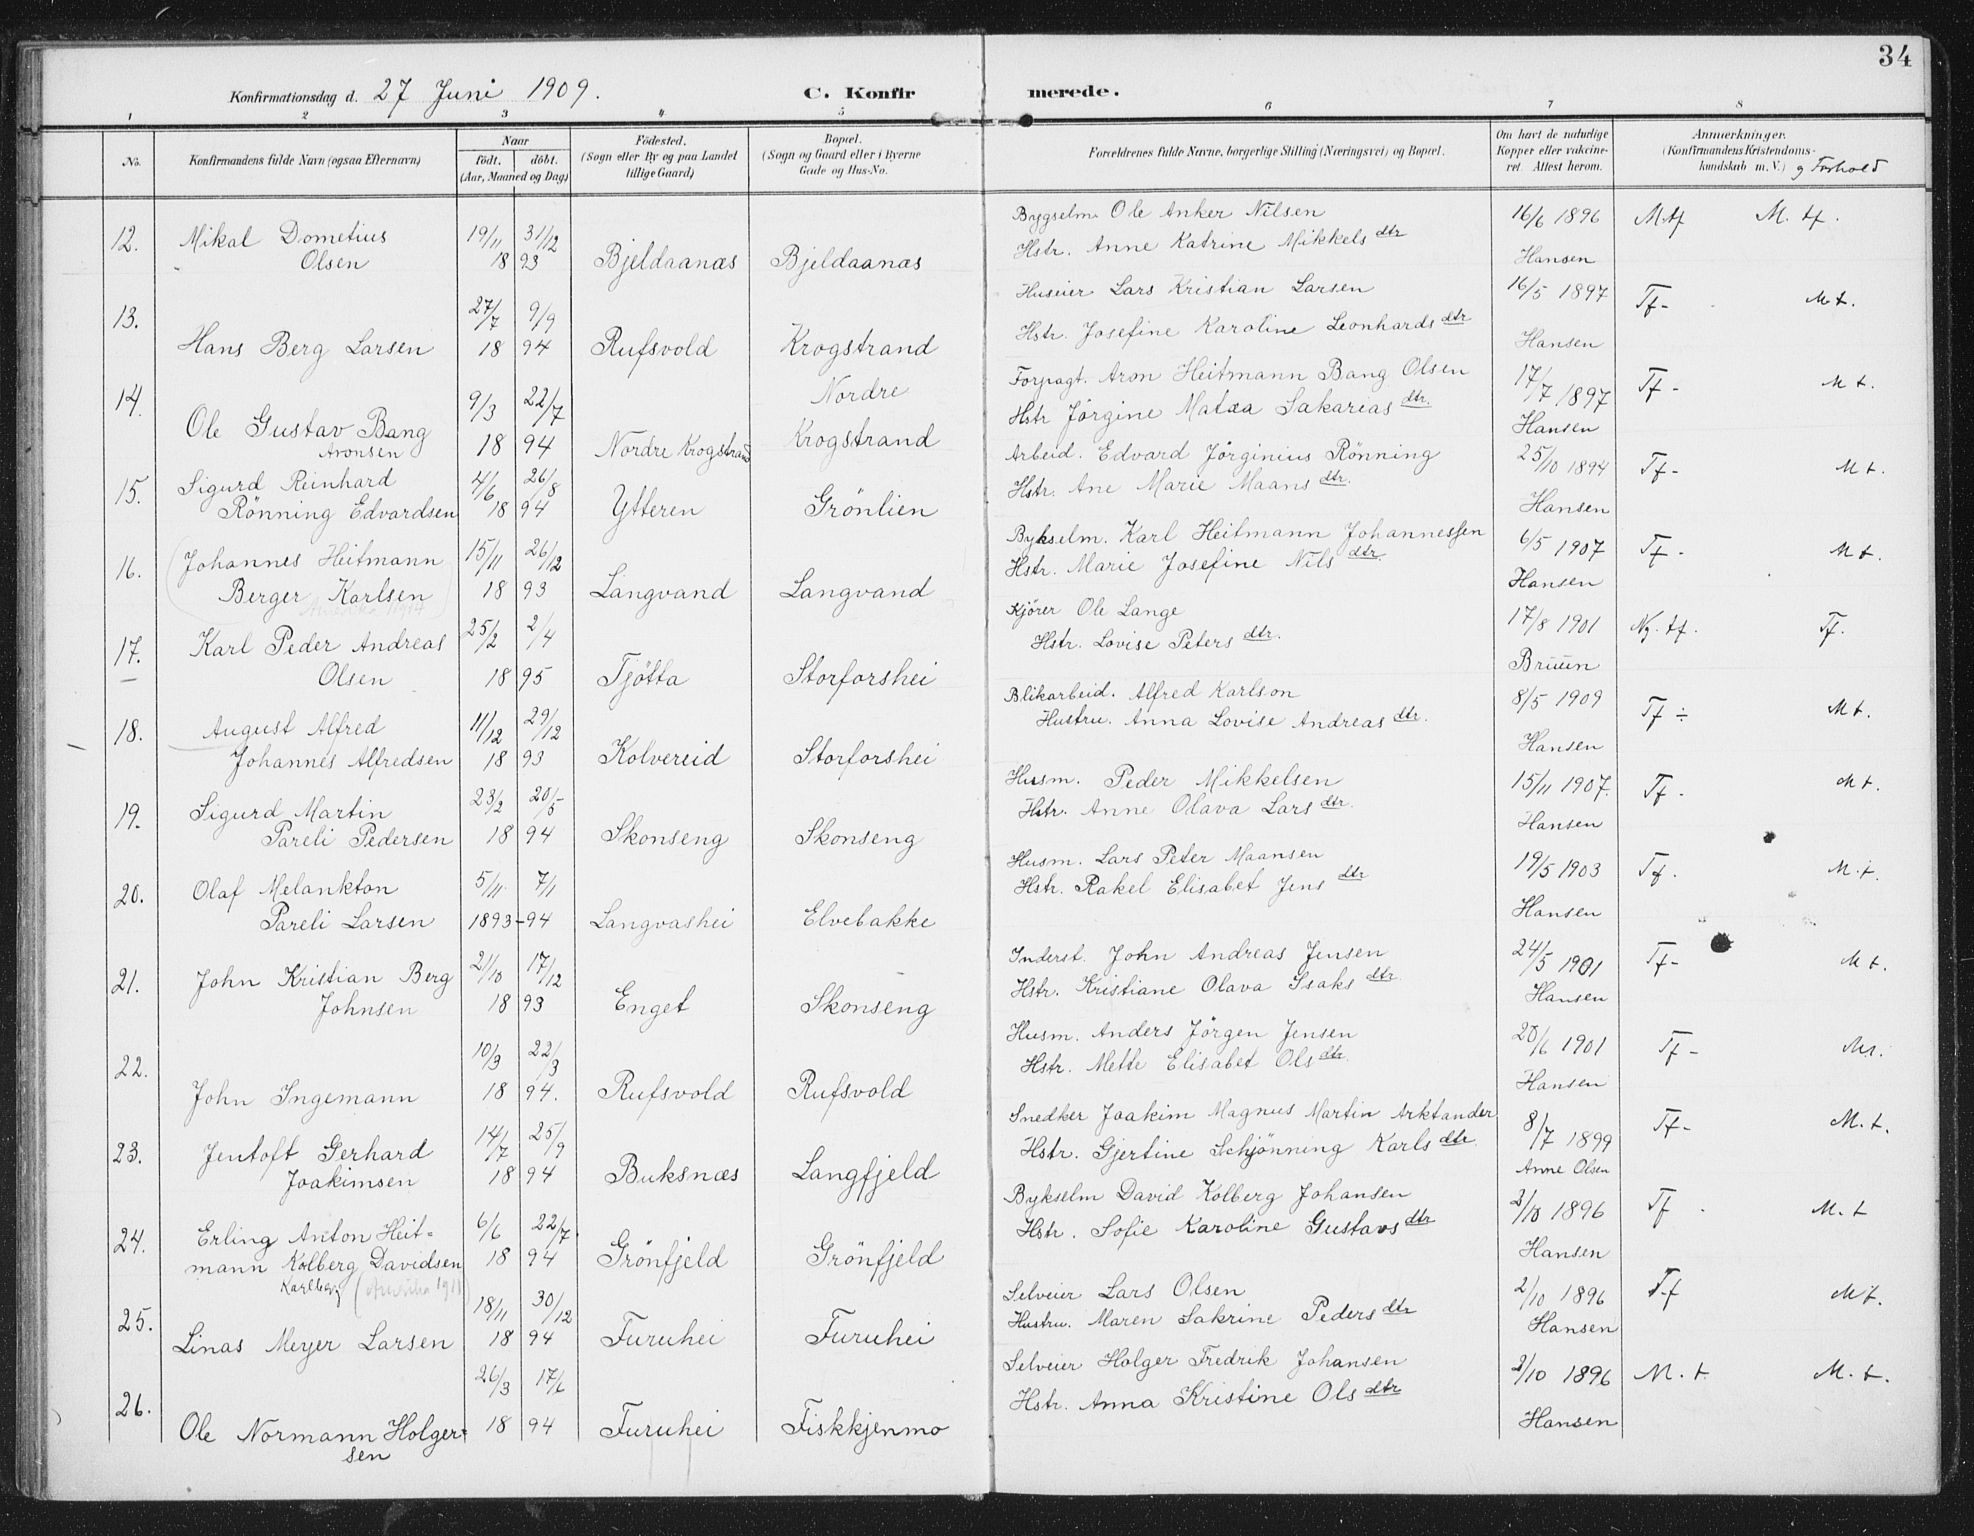 34
Konfirmationsdag d. 27 Juni 1909. C. Konfirmerede.
1 2 3 4 5 6 7 8
No. Konfirmandens fulde Navn (ogsaa Efternavn) Naar födt. döbt. (Aar, Maaned og Dag) Födested. (Sogn eller By og paa Landet tillige Gaard) Bopæl. (Sogn og Gaard eller i Byerne Gade og Hus-No. Forældrenes fulde Navne, borgerlige Stilling (Næringsvei) og Bopæl. Om havt de naturlige Kopper eller vakcineret. Attest herom. Anmærkninger. (Konfirmandens Kristendomskundskab m. V.) og Forhold
12. Mikal Dometius 19/11 31/12 Bygselm. Ole Anker Nilsen 16/6 1896 Mtf M. tf.
Olsen 18 93 Bjeldaanæs Bjeldaanæs Hstr. Anne Katrine Mikkelsdtr Hansen
13. 27/7 9/9 Huseier Lars Kristian Larsen 16/5 1897 Tf- Mt.
Hans Berg Larsen 18 94 Rufsvold Krogstrand Hstr. Josefine Karoline Leonhardsdtr Hansen
14. 9/3 22/7 Nordre Forpagt. Aron Heitmann Bang Olsen 17/7 1897 Tf- Mt.
Ole Gustav Bang 18 94 Nordre Krogstrand Krogstrand Hstr Jörgine Matæa Sakariasdtr. Hansen
Aronsen
15. Sigurd Reinhard 4/6 26/8 Arbeid. Edvard Jörginius Rönning 25/10 1894 Tf- Mt.
Rönning Edvardsen 18 94 Ytteren Grönlien Hstr. Ane Marie Maansdtr. Hansen
16. (Johannes Heitmann 15/11 26/12 Bykselm. Karl Heitmann Johannessen 6/5 1907 Tf- Mt.
Berger Karlsen 18 93 Langvand Langvand Hstr. Marie Josefine Nilsdtr. Hansen
17. Karl Peder Andreas 25/2 2/4 Kjörer Ole Lange 17/8 1901 Ng. tf. Tf.
Olsen 18 95 Tjötta Storforshei Hstr. Lovise Petersdtr. Bruun
18. August Alfred 11/12 29/12 Blikarbeid. Alfred Karlson 8/5 1909 Tf ÷ Mt.
Johannes Alfredsen 18 93 Kolvereid Storforshei Hustru. Anna Lovise Andreasdtr. Hansen
19. Sigurd Martin 23/2 20/5 Husm. Peder Mikkelsen 15/11 1907. Tf- Mt.
Pareli Pedersen 18 94 Skonseng Skonseng Hstr. Anne Olava Larsdtr. Hansen
20. Olaf Melankton 5/11. 7/1 Husm. Lars Peter Maansen 19/5 1903 Tf. M.t.
Pareli Larsen 1893-94 Langvashei Elvebakke Hstr. Rakel Elisabet Jensdtr Hansen
21. John Kristian Berg 2/10 17/12 Inderst. John Andreas Jensen 24/5 1901 Tf- Mt.
Johnsen 18 93 Enget Skonseng Hstr. Kristiane Olava Isaksdtr. Hansen
22. 10/3 22/3 Husm. Anders Jörgen Jensen 20/6 1901 Tf-
John Ingemann 18 94. Rufsvold Rufsvold Hstr. Mette Elisabet Olsdtr. Hansen
23. Jentoft Gerhard 14/7 25/9 Snedker Joakim Magnus Martin Arktander 8/7 1899 Tf- M.t.
Joakimsen 18 94 Buksnæs Langfjeld Hstr. Gjertine Schjönning Karlsdtr. Anne Olsen
24. Erling Anton Heit= 6/6 22/7. Bykselm David Kolberg Johansen 2/10 1896 Tf M.t
mann Kolberg Davidsen 18 94 Grönfjeld Grönfjeld Hstr. Sofie Karoline Gustavsdtr Hansen
Karlberg (Amerika 1911)
25. 18/11 30/12 Selveier Lars Olsen 2/10 1896 Tf Mt.
Linas Meyer Larsen 18 94 Furuhei Furuhei Hustru. Maren Sakrine Pedersdtr Hansen
26. 26/3 17/6 Selveier Holger Fredrik Johansen 2/10 1896 M.t M.t.
Ole Normann Holger= 18 94 Furuhei Fiskkjenmo Hstr. Anna Kristine Olsdtr Hansen
sen